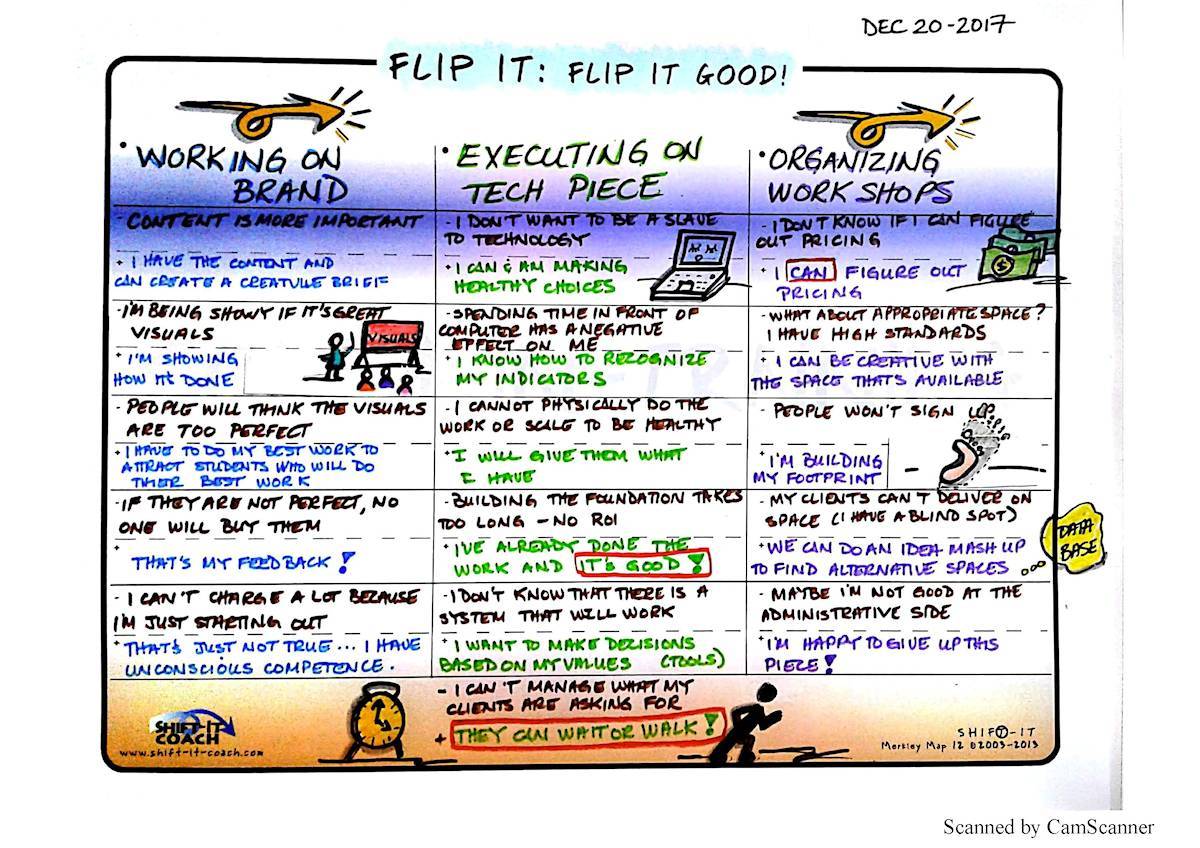 DEC 20-2017
FLIP IT: FLIP IT GOOD!
• WORKING ON
BRAND
- CONTENT IS MORE IMPORTANT
+ I HAVE THE CONTENT AND
CAN CREATE A CREATIVE BRIEF
- I'M BEING SHOWY IF IT'S GREAT
VISUALS
VISUALS
+ I'M SHOWING
HOW IT'S DONE
- PEOPLE WILL THINK THE VISUALS
ARE TOO PERFECT
+ I HAVE TO DO MY BEST WORK TO
ATTRACT STUDENTS WHO WILL DO
THEIR BEST WORK
- IF THEY ARE NOT PERFECT, NO
ONE WILL BUY THEM
+
THAT'S MY FEEDBACK!
- I CAN'T CHARGE A LOT BECAUSE
I'M JUST STARTING OUT
+ THAT'S JUST NOT TRUE... I HAVE
UNCONSCIOUS COMPETENCE.
• EXECUTING ON
TECH PIECE
- I DON'T WANT TO BE A SLAVE
TO TECHNOLOGY
+ I CAN & AM MAKING
HEALTHY CHOICES
- SPENDING TIME IN FRONT OF
COMPUTER HAS A NEGATIVE
EFFECT ON ME
+ I KNOW HOW TO RECOGNIZE
MY INDICATORS
- I CANNOT PHYSICALLY DO THE
WORK OR SCALE TO BE HEALTHY
+ I WILL GIVE THEM WHAT
I HAVE
- BUILDING THE FOUNDATION TAKES
TOO LONG - NO ROI
+ I'VE ALREADY DONE THE
WORK AND IT'S GOOD!
- I DON'T KNOW THAT THERE IS A
SYSTEM THAT WILL WORK
+ I WANT TO MAKE DECISIONS
BASED ON MY VALUES (TOOLS)
- I CAN'T MANAGE WHAT MY
CLIENTS ARE ASKING FOR
+ THEY CAN WAIT OR WALK!
• ORGANIZING
WORKSHOPS
- I DON'T KNOW IF I CAN FIGURE
OUT PRICING
$
+ I CAN FIGURE OUT
PRICING
- WHAT ABOUT APPROPRIATE SPACE?
I HAVE HIGH STANDARDS
+ I CAN BE CREATIVE WITH
THE SPACE THAT'S AVAILABLE
- PEOPLE WON'T SIGN UP
+ I'M BUILDING
MY FOOTPRINT
- MY CLIENTS CAN'T DELIVER ON
SPACE (I HAVE A BLIND SPOT)
+ WE CAN DO AN IDEA MASH UP
TO FIND ALTERNATIVE SPACES
DATA
BASE
- MAYBE I'M NOT GOOD AT THE
ADMINISTRATIVE SIDE
+ I'M HAPPY TO GIVE UP THIS
PIECE!
SHIFT-IT
COACH
www.shift-it-coach.com
SHIFT-IT
Merkley Map 12 ©2003-2013
Scanned by CamScanner